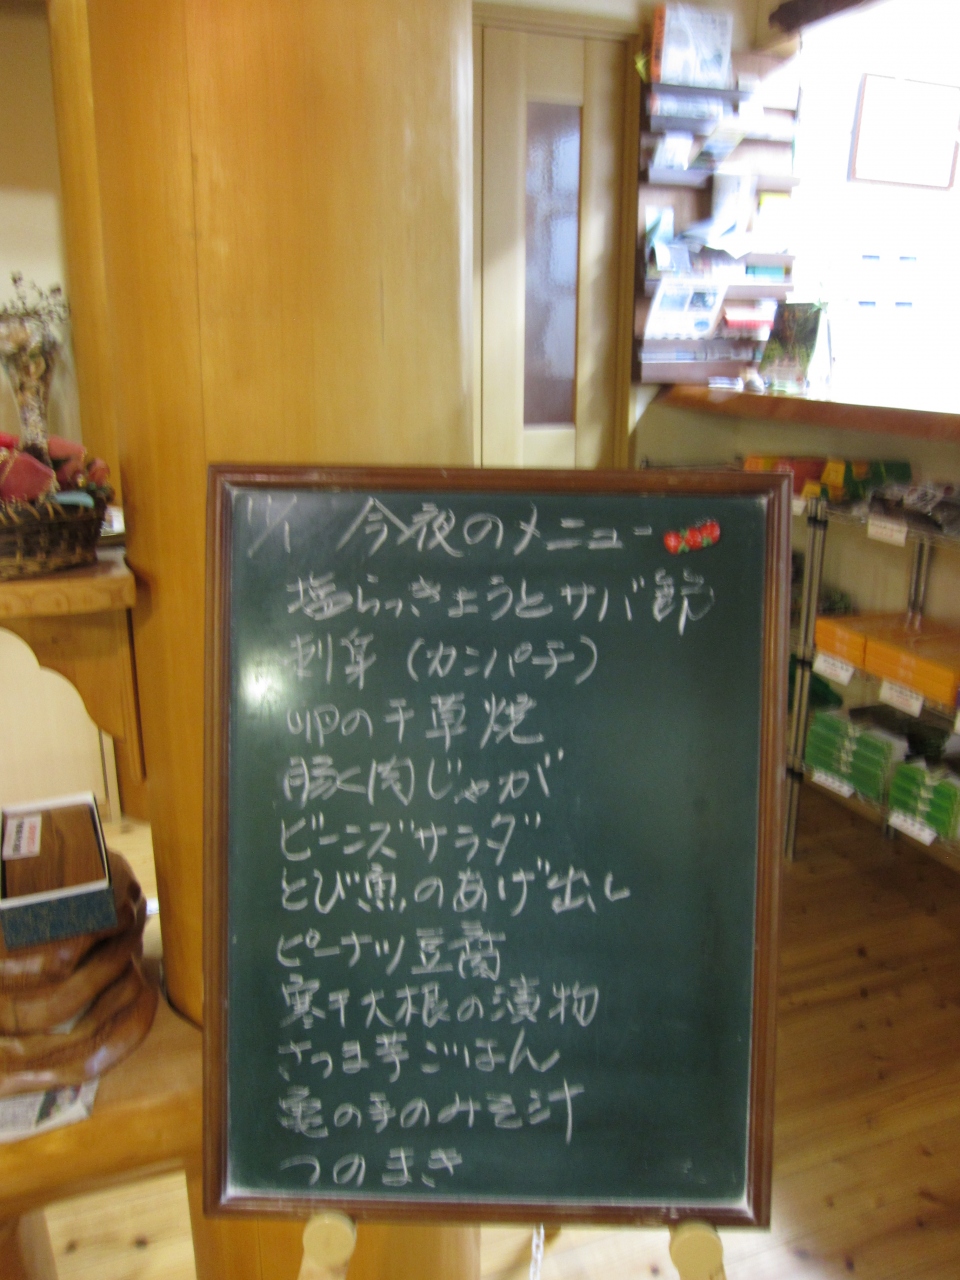 11/1 今夜のメニュー
塩らっきょうとサバ節
刺身(カンパチ)
卵の千草焼
豚肉じゃが
ビーンズサラダ
とび魚のあげ出し
ピーナツ豆腐
寒干大根の漬物
さつま芋ごはん
亀の手のみそ汁
つのまき